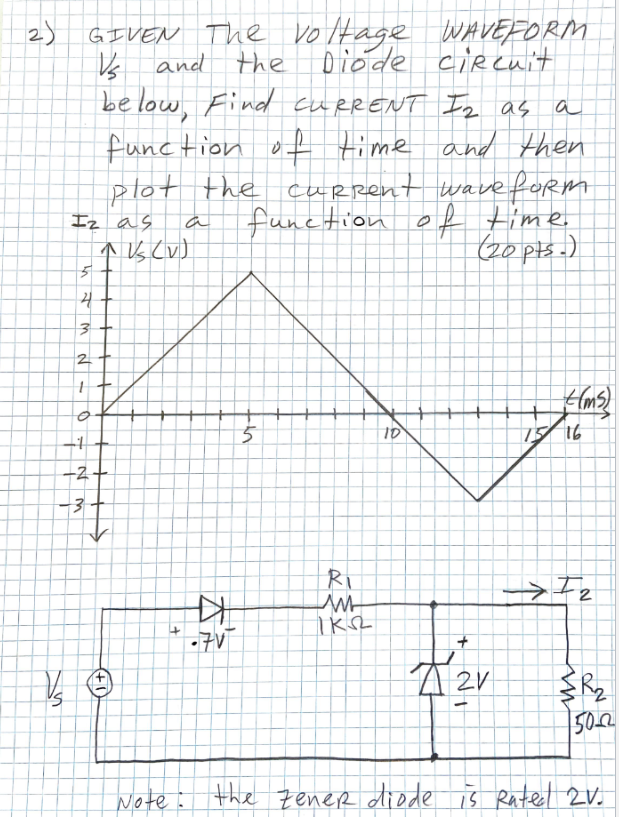 2) GIVEN The Voltage WAVEFORM
Vs and the Diode circuit
below, Find CURRENT I2 as a
function of time and then
plot the current waveform
I2 as a function of time.
(20 pts.)
Vs (V)
5
4
3
2
1
0
-1
-2
-3
5
10
15
16
t(ms)
R1
1KΩ
→ I2
+ .7V -
Vs
+
-
+
2V
-
R2
50Ω
Note: the zener diode is Rated 2V.